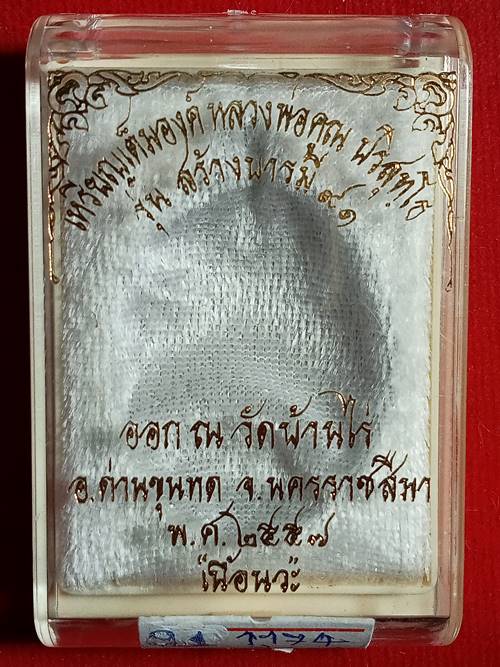 เหรียญเต็มองค์ หลวงพ่อคูณ ปริสุทฺโธ
รุ่น สร้างบารมี ๙๑
ออก ณ วัดบ้านไร่
อ.ด่านขุนทด จ.นครราชสีมา
พ.ศ.๒๕๕๗
เนื้อนวะ